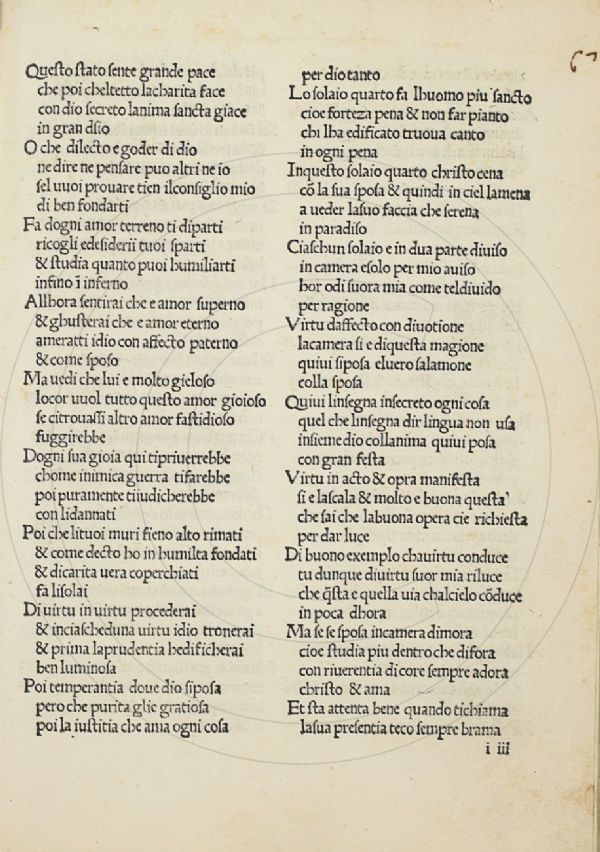 Questo stato sente grande pace
che poi cheltetto lacharita face
con dio secreto lanima sancta giace
in gran dſio
O che dilecto e goder di dio
ne dire ne pensare puo altri ne io
sel uuoi prouare tien ilconsiglio mio
di ben fondarti
Fa dogni amor terreno ti diparti
ricogli edesiderii tuoi sparti
& studia quanto puoi humiliarti
infino ī inferno
Allhora sentirai che e amor superno
& ghusterai che e amor eterno
ameratti idio con affecto paterno
& come sposo
Ma uedi che lui e molto gieloso
locor uuol tutto questo amor gioioso
se citrouassi altro amor fastidioso
fuggirebbe
Dogni sua gioia qui tipriuerrebbe
chome inimica guerra tifarebbe
poi puramente tiiudicherebbe
con lidannati
Poi che lituoi muri fieno alto rimati
& come decto ho in humilta fondati
& dicarita uera coperchiati
fa lisolai
Di uirtu in uirtu procederai
& inciascheduna uirtu idio tronerai
& prima laprudentia hedificherai
ben luminosa
Poi temperantia doue dio siposa
pero che purita glie gratiosa
poi la iustitia che ama ogni cosa
per dio tanto
Lo solaio quarto fa lhuomo piu sancto
cioe forteza pena & non far pianto
chi lha edificato truoua canto
in ogni pena
Inquesto solaio quarto christo cena
cō la sua sposa & quindi in ciel lamena
a ueder lasuo faccia che serena
in paradiso
Ciaschun solaio e in dua parte diuiso
in camera esolo per mio auiso
hor odi suora mia come teldiuido
per ragione
Virtu daffecto con diuotione
lacamera si e diquesta magione
quiui siposa eluero salamone
colla sposa
Quiui linsegna insecreto ogni cosa
quel che linsegna dir lingua non usa
insieme dio collanima quiui posa
con gran festa
Virtu in acto & opra manifesta
si e lascala & molto e buona questa
che sai che labuona opera cie richiesta
per dar luce
Di buono exemplo chauirtu conduce
tu dunque diuirtu suor mia riluce
che q̄sta e quella uia chalcielo cōduce
in poca dhora
Ma se se sposa incamera dimora
cioe studia piu dentro che difora
con riuerentia di core sempre adora
christo & ama
Et sta attenta bene quando tichiama
lasua presentia teco sempre brama
i iii